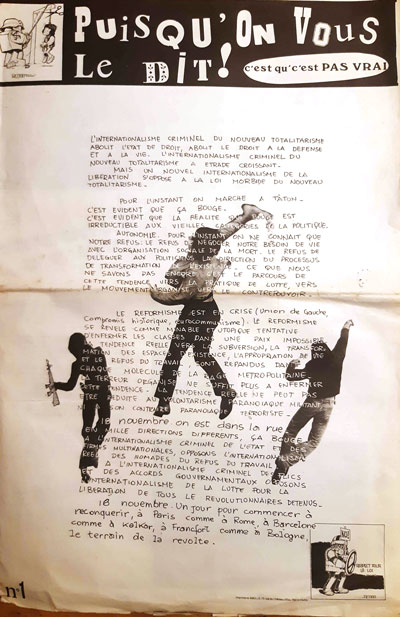 PUISQU'ON VOUS
LE DIT!
c'est qu'c'est PAS VRAI
L'INTERNATIONALISME CRIMINEL DU NOUVEAU TOTALITARISME
ABOLIT L'ETAT DE DROIT, ABOLIT LE DROIT A LA DÉFENSE
ET A LA VIE. L'INTERNATIONALISME CRIMINEL DU
NOUVEAU TOTALITARISME A ETRADÉ CROISSANT.
MAIS UN NOUVEL INTERNATIONALISME DE LA
LIBÉRATION S'OPPOSE A LA LOI MORBIDE DU NOUVEAU
TOTALITARISME.
POUR L'INSTANT ON MARCHE A TATON.
C'EST EVIDENT QUE ÇA BOUGE.
C'EST EVIDENT QUE LA REALITÉ QUI BOUGE EST
IRREDICTIBLE AUX VIEILLES DE LA POLITIQUE.
AUTONOMIE. POUR L'INSTANT ON NE CONNAIT QUE
NOTRE REFUS: LE REFUS DE NEGOCIER NOTRE BESOIN DE VIE
AVEC L'ORGANISATION SOCIALE DE LA MORT. LE REFUS DE
DELEGUER AUX POLITICIENS DU PROCESSUS
DE TRANSFORMATION DE L'EXISTENCE. CE QUE NOUS
NE SAVONS PAS ENCORE C'EST LE PARCOURS DE
CETTE TENDANCE VERS LA PRATIQUE DE LUTTE, VERS
LE MOUVEMENT LE CONTREPOUVOIR.
LE REFORMISME EST EN CRISE (Union de Gauche,
Compromis historique, eurocommunisme). LE REFORMISME
SE REVELE COMME MINABLE ET UTOPIQUE TENTATIVE
D'ENFERMER LES CLASSES DANS UNE PAIX IMPOSSIBLE.
LA TENDENCE REELLE SUBVERSION, LA TRANSFOR
MATION DES ESPACES D'EXISTENCE, L'APPROPRIATION DE VIE
ET LE REFUS DU TRAVAIL SONT REPANDUS DANS
CHAQUE MOLECULE DE LA RAGE METROPOLITAINE.
LA TERREUR ORGANISÉE NE SUFFIT PLUS A ENFERMER
CETTE TENDENCE. LA TENDENCE REELLE NE PEUT PAS
ETRE REDUITE AU VOLONTARISME PARANOIAQUE MILITANT
NI A SON CONTRAIRE PARANOIAQUE TERRORISTE.
18 novembre on est dans la rue
EN MILLE DIRECTIONS DIFFERENTS, ÇA BOUGE
L'INTERNATIONALISME CRIMINEL DE L'ETAT ET DES
FIRMES MULTINATIONALES, OPPOSONS L'INTERNATIONALISME
REEL DES NOMADES DU REFUS DU TRAVAIL
A L'INTERNATIONALISME CRIMINEL DES FLICS
DES ACCORDS GOUVERNAMENTAUX OPPOSONS
L'INTERNATIONALISME DE LA LUTTE POUR LA
LIBERATION DE TOUS LE REVOLUTIONNAIRES DETENUS.
18 novembre. Un jour pour commencer à
reconquerir, à Paris comme à Rome, à Barcelone
comme à Kalkar, à Francfort comme à Bologne,
le terrain de la revolte.
RESPECT POUR
LE LOI
n°1